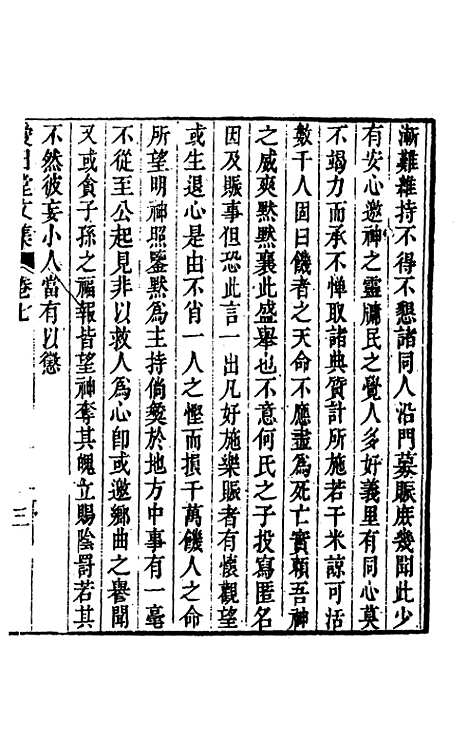 漸難維持不得不懇諸同人沿門募賑庶幾聞此少
有安心邀神之靈牖民之覺人多好義里有同心莫
不竭力而承不憚取諸典質計所施若干米諒可活
數千人固曰饑者之天命不應盡爲死亡實賴吾神
之威爽默默襄此盛舉也不意何氏之子投寫匿名
因及賑事但恐此言一出凡好施樂賑者有懷觀望
或生退心是由不肖一人之慳而損千萬饑人之命
所望明神照鑒默爲主持倘變於地方中事有一毫
不從至公起見非以救人爲心卽或邀鄉曲之譽聞
又或貪子孫之福報皆望神奪其魄立賜陰罰若其
不然彼妄小人當有以懲
愛日堂文集
卷七
三